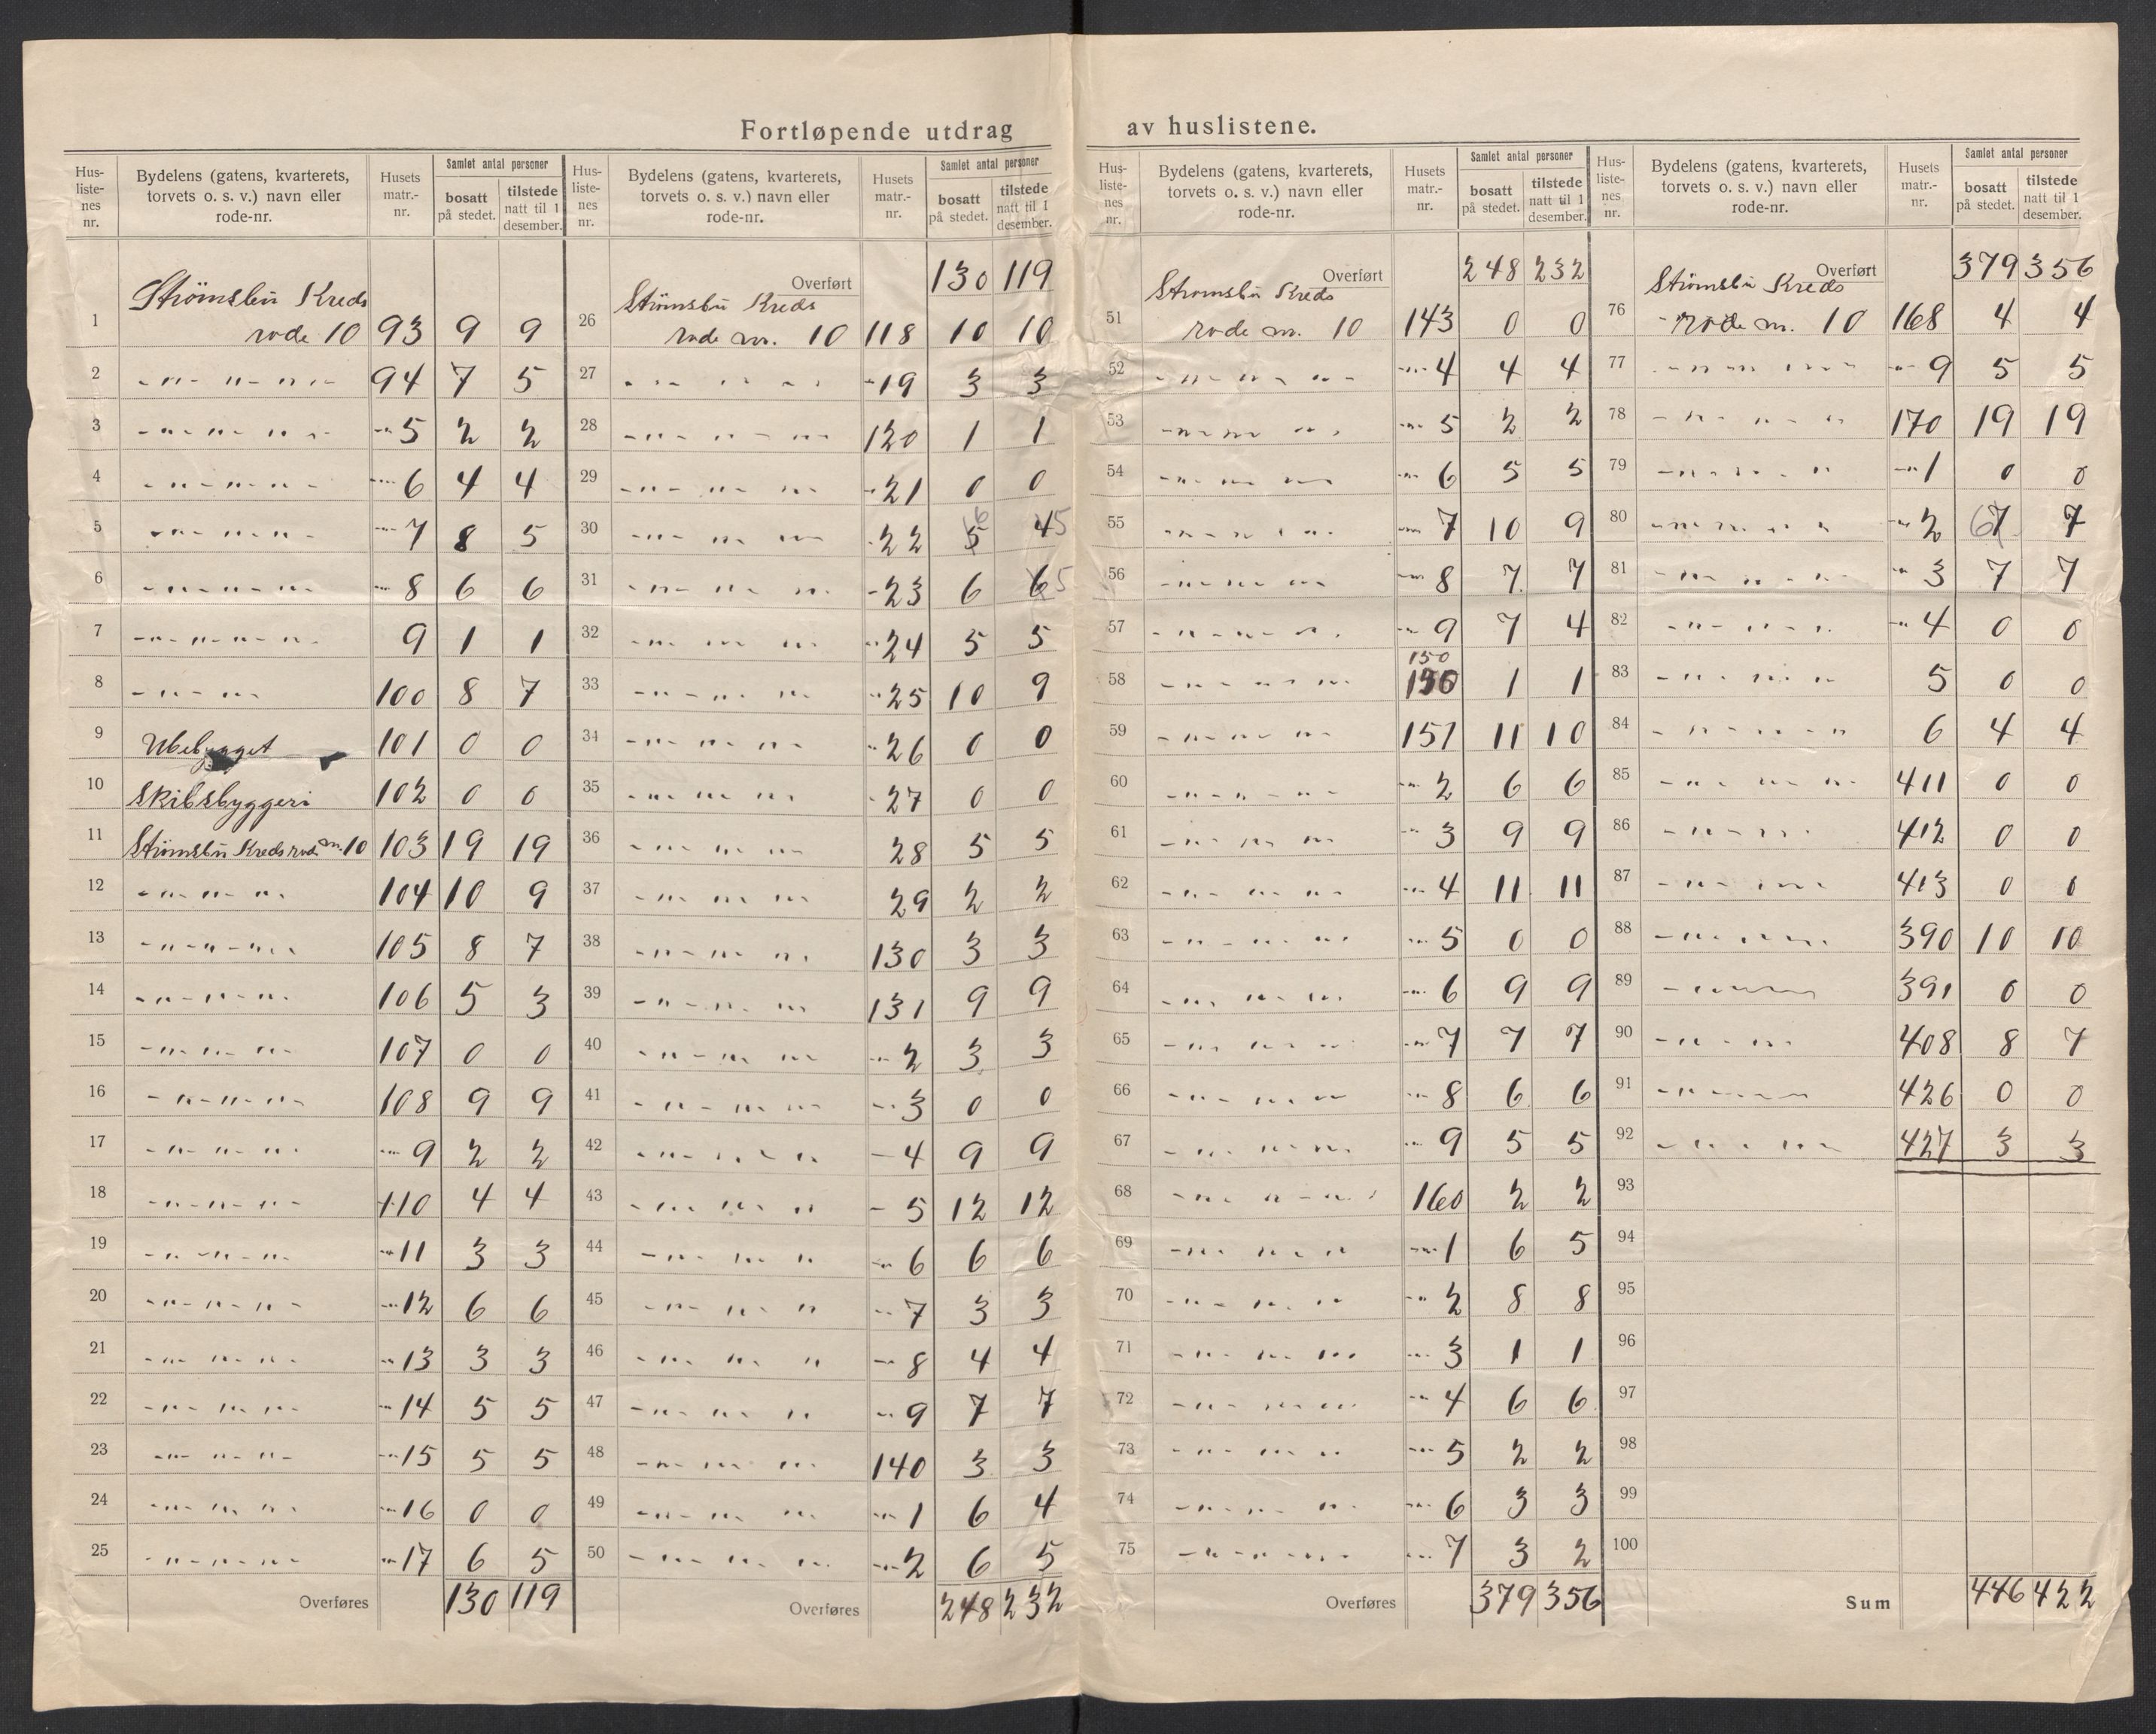 Fortløpende utdrag av huslistene.
Hus-liste-nes nr. | Bydelens (gatens, kvarterets, torvets o. s. v.) navn eller rode-nr. | Husets matr.-nr. | Samlet antal personer bosatt på stedet. | tilstede natt til 1 desember.
1 Strømsbu Kreds rode 10 93 9 9
2 -"- "- "- 94 7 5
3 -"- "- "- -"- 5 2 2
4 -"- "- "- -"- 6 4 4
5 -"- "- "- -"- 7 8 5
6 -"- "- "- -"- 8 6 6
7 -"- "- "- 9 1 1
8 -"- "- 100 8 7
9 Ubebygget 101 0 0
10 Skibsbyggeri 102 0 0
11 Strømsbu Kreds rode nr. 10 103 19 19
12 -"- "- "- 104 10 9
13 -"- "- "- 105 8 7
14 -"- "- "- 106 5 3
15 -"- "- "- 107 0 0
16 -"- "- "- 108 9 9
17 -"- "- "- -"- 9 2 2
18 -"- "- "- 110 4 4
19 -"- "- "- -"- 11 3 3
20 -"- "- "- -"- 12 6 6
21 -"- "- "- -"- 13 3 3
22 -"- "- "- -"- 14 5 5
23 -"- "- "- -"- 15 5 5
24 -"- "- "- -"- 16 0 0
25 -"- "- "- -"- 17 6 5
Overføres 130 119
Hus-liste-nes nr. | Bydelens (gatens, kvarterets, torvets o. s. v.) navn eller rode-nr. | Husets matr.-nr. | Samlet antal personer bosatt på stedet. | tilstede natt til 1 desember.
Overført 130 119
26 Strømsbu Kreds rode nr. 10 118 10 10
27 -"- "- "- -19 3 3
28 -"- "- "- 120 1 1
29 -"- "- "- -21 0 0
30 -"- "- "- -22 5 6 4 5
31 -"- "- "- -23 6 6 5
32 -"- "- "- -"24 5 5
33 -"- "- "- -"25 10 9
34 -"- "- "- "26 0 0
35 -"- "- "- -27 0 0
36 -"- "- "- 28 5 5
37 -"- "- "- 29 2 2
38 -"- "- "- 130 3 3
39 -"- "- "- 131 9 9
40 -"- "- "- -"- 2 3 3
41 -"- "- "- -"- 3 0 0
42 -"- "- "- - 4 9 9
43 -"- "- "- - 5 12 12
44 -"- "- "- -"- 6 6 6
45 -"- "- "- -"- 7 3 3
46 -"- "- "- -"- 8 4 4
47 -"- "- "- -"- 9 7 7
48 -"- "- "- 140 3 3
49 -"- "- "- -"- 1 6 4
50 -"- "- "- -"- 2 6 5
Overføres 248 232
Hus-liste-nes nr. | Bydelens (gatens, kvarterets, torvets o. s. v.) navn eller rode-nr. | Husets matr.-nr. | Samlet antal personer bosatt på stedet. | tilstede natt til 1 desember.
Overført 248 232
51 Strømsbu Kreds rode nr. 10 143 0 0
52 -"- "- "- -"- 4 4 4
53 -"- "- "- -"- 5 2 2
54 -"- "- "- -"- 6 5 5
55 -"- "- "- -"- 7 10 9
56 -"- "- "- -"- 8 7 7
57 -"- "- "- -"- 9 7 4
58 -"- "- "- 150 150 1 1
59 -"- "- "- 151 11 10
60 -"- "- "- -"- 2 6 6
61 -"- "- "- -"- 3 9 9
62 -"- "- "- -"- 4 11 11
63 -"- "- "- -"- 5 0 0
64 -"- "- "- -"- 6 9 9
65 -"- "- "- -"- 7 7 7
66 -"- "- "- -"- 8 6 6
67 -"- "- "- -"- 9 5 5
68 -"- "- "- 160 2 2
69 -"- "- "- -"- 1 6 5
70 -"- "- "- -"- 2 8 8
71 -"- "- "- -"- 3 1 1
72 -"- "- "- -"- 4 6 6
73 -"- "- "- -"- 5 2 2
74 -"- "- "- -"- 6 3 3
75 -"- "- "- -"- 7 3 2
Overføres 379 356
Hus-liste-nes nr. | Bydelens (gatens, kvarterets, torvets o. s. v.) navn eller rode-nr. | Husets matr.-nr. | Samlet antal personer bosatt på stedet. | tilstede natt til 1 desember.
Overført 379 356
76 Strømsbu Kreds rode nr. 10 168 4 4
77 -"- "- "- -"- 9 5 5
78 -"- "- "- 170 19 19
79 -"- "- "- -"- 1 0 0
80 -"- "- "- -"- 2 6 7 7
81 -"- "- "- -"- 3 7 7
82 -"- "- "- -"- 4 0 0
83 -"- "- "- 5 0 0
84 -"- "- "- 6 4 4
85 -"- "- "- 411 0 0
86 -"- "- 412 0 0
87 -"- "- 413 0 0
88 -"- "- 390 10 10
89 -"- "- 391 0 0
90 -"- "- 408 8 7
91 -"- "- 426 0 0
92 -"- "- "- 427 3 3
93
94
95
96
97
98
99
100
Sum 446 422